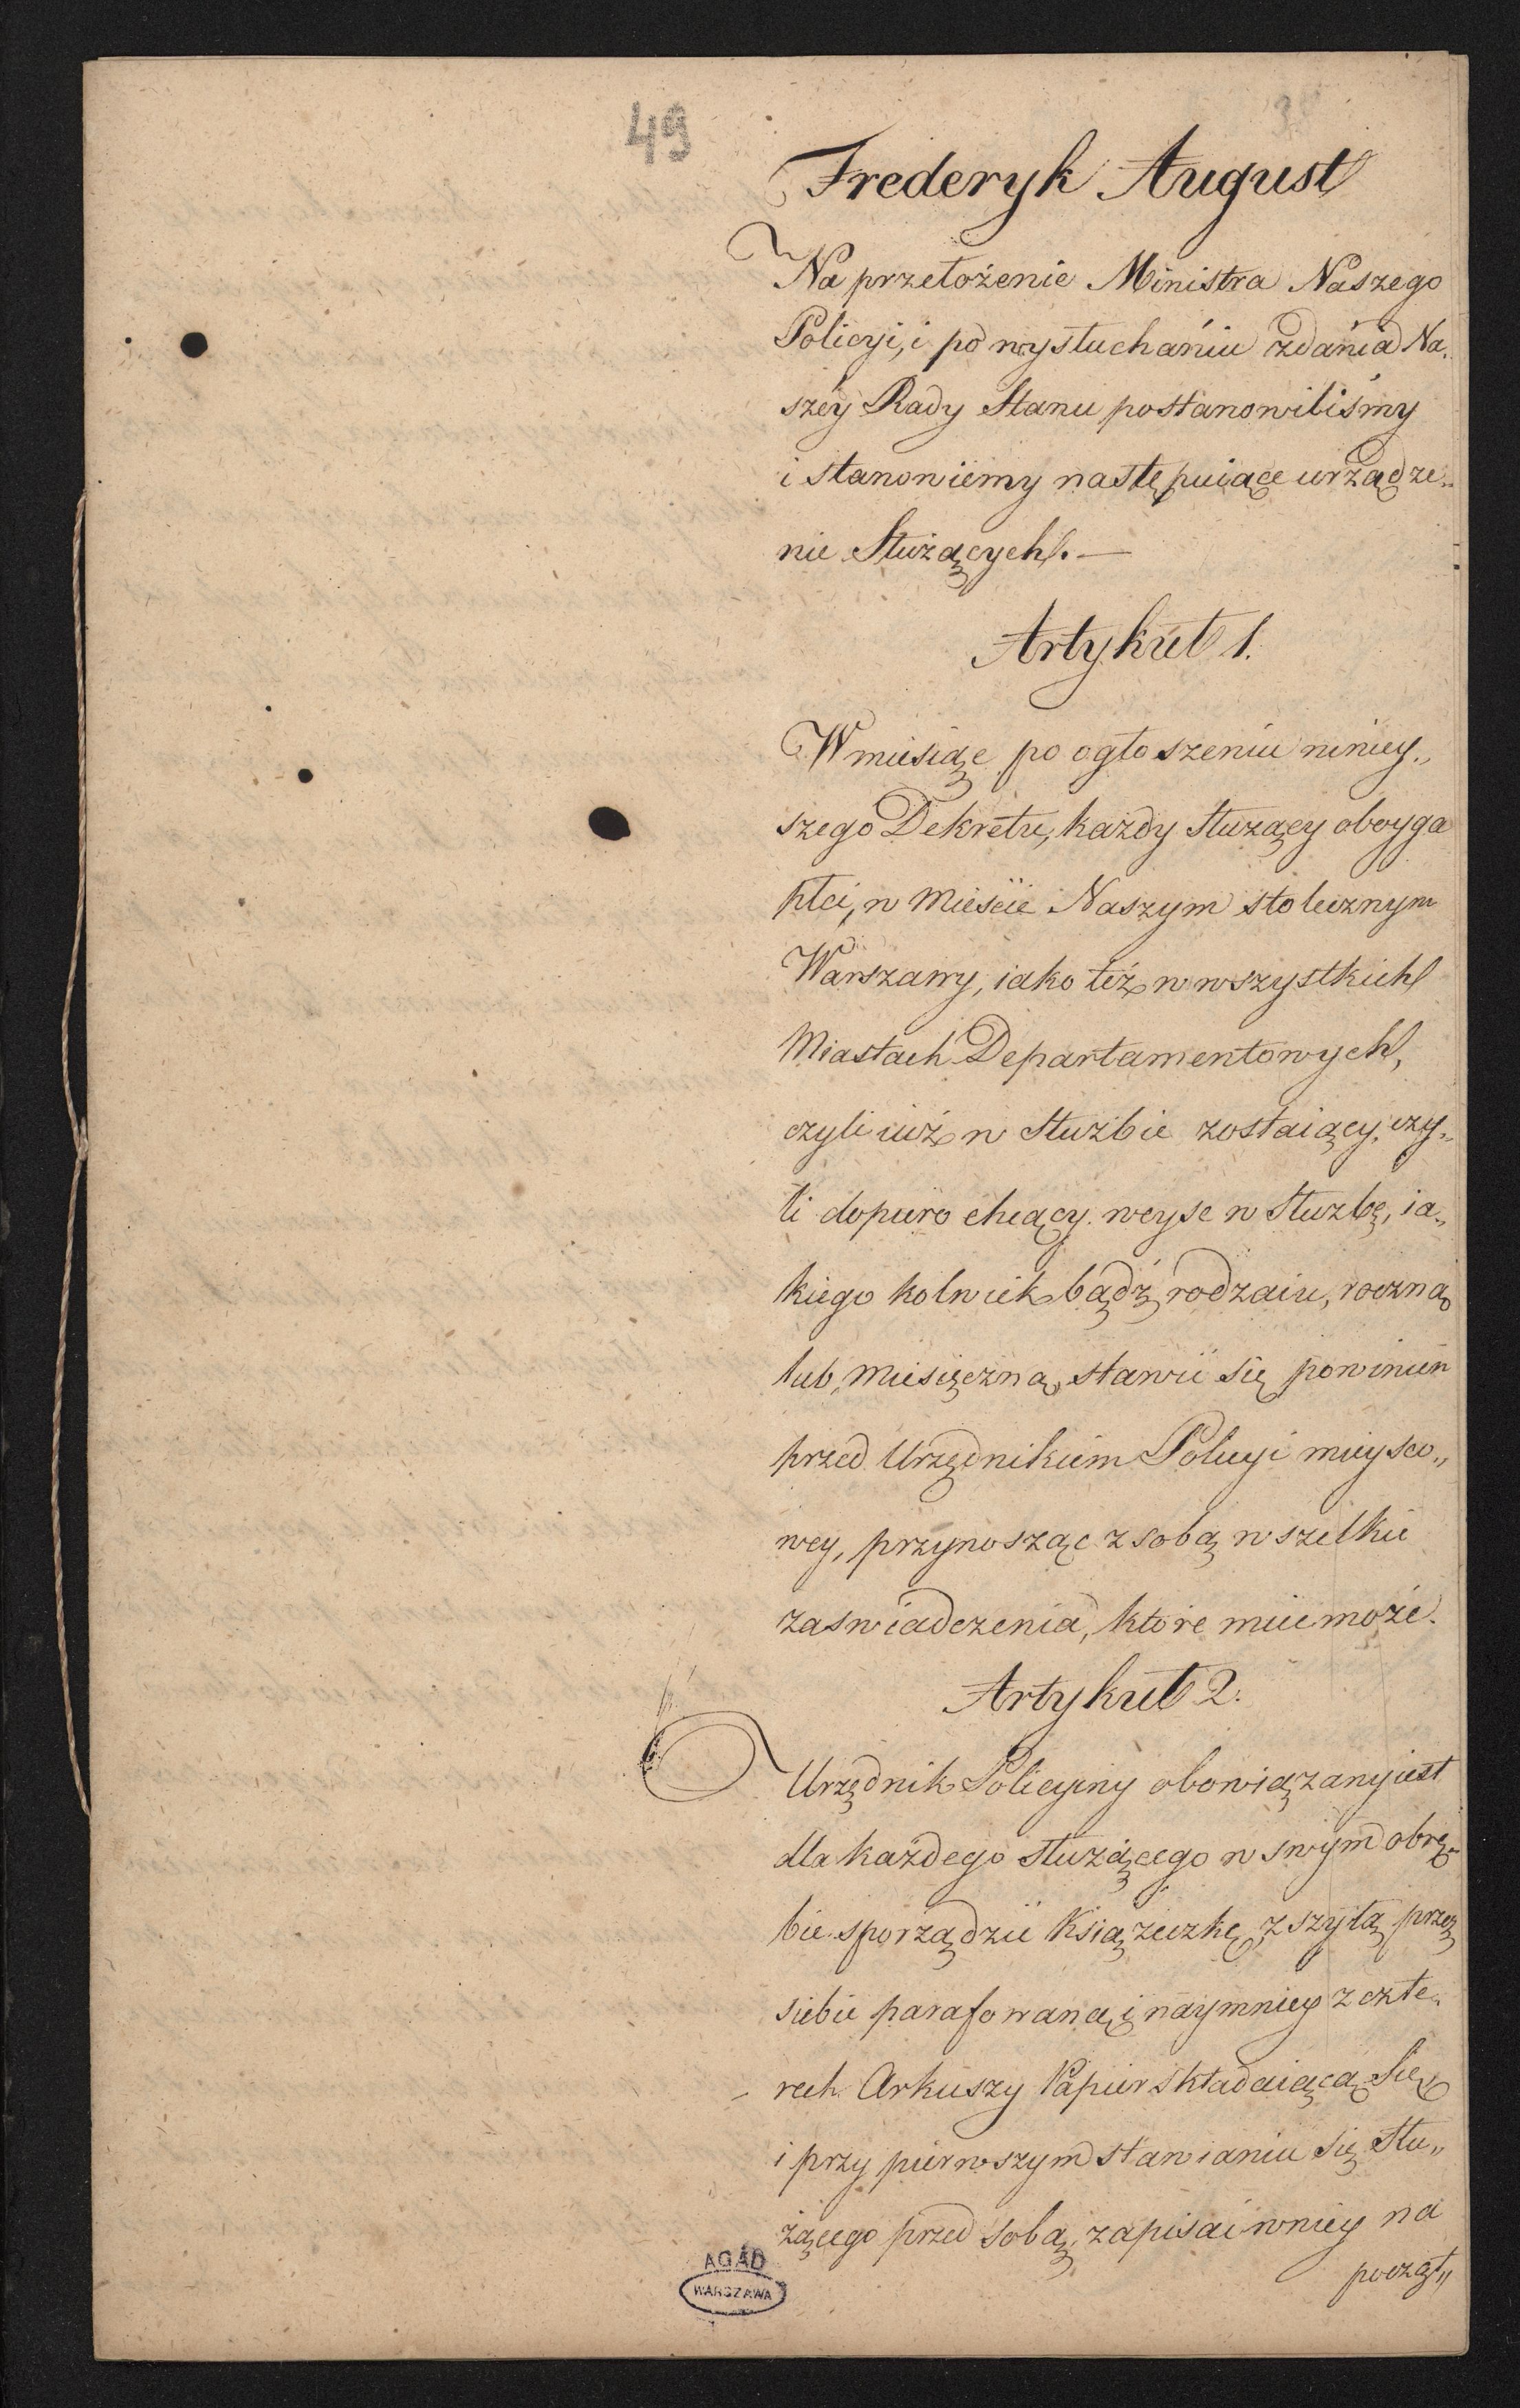 49
Frederyk August
Na przełożenie Ministra Naszego
Policyi, i po wysłuchaniu zdania Na„
széy Rady Stanu postanowiliśmy
i stanowiemy następuiące urządze„
nie Służących. —
Artykuł 1.
W miesiąc po ogłoszeniu niniey„
szego Dekretu, każdy Służący oboyga
płci, w Mieście Naszym stołecznym
Warszawy, iako też w wszystkich
Miastach Departamentowych,
czyli iuż w Służbie zostaiący, czy„
li dopiero chcący weyść w Służbę, ia„
kiego kolwiek bądź rodzaiu, roczną
lub Miesięczną, stawić się powinien
przed Urzędnikiem Policyi mieysco„
wey, przynosząc z sobą wszelkie
zaswiadczenia, które mieć może.
Artykuł 2.
Urzędnik Policyiny obowiązany iest
dla każdego Służącego w swym obrę„
bie sporządzić Książeczkę zszytą przez
siebie parafowaną i naymniey z czte„
rech Arkuszy Papieru składaiącą się
i przy pierwszym stawianiu się Słu„
żącego przed sobą, zapisać w niey na
począt„
AGAD
WARSZAWA